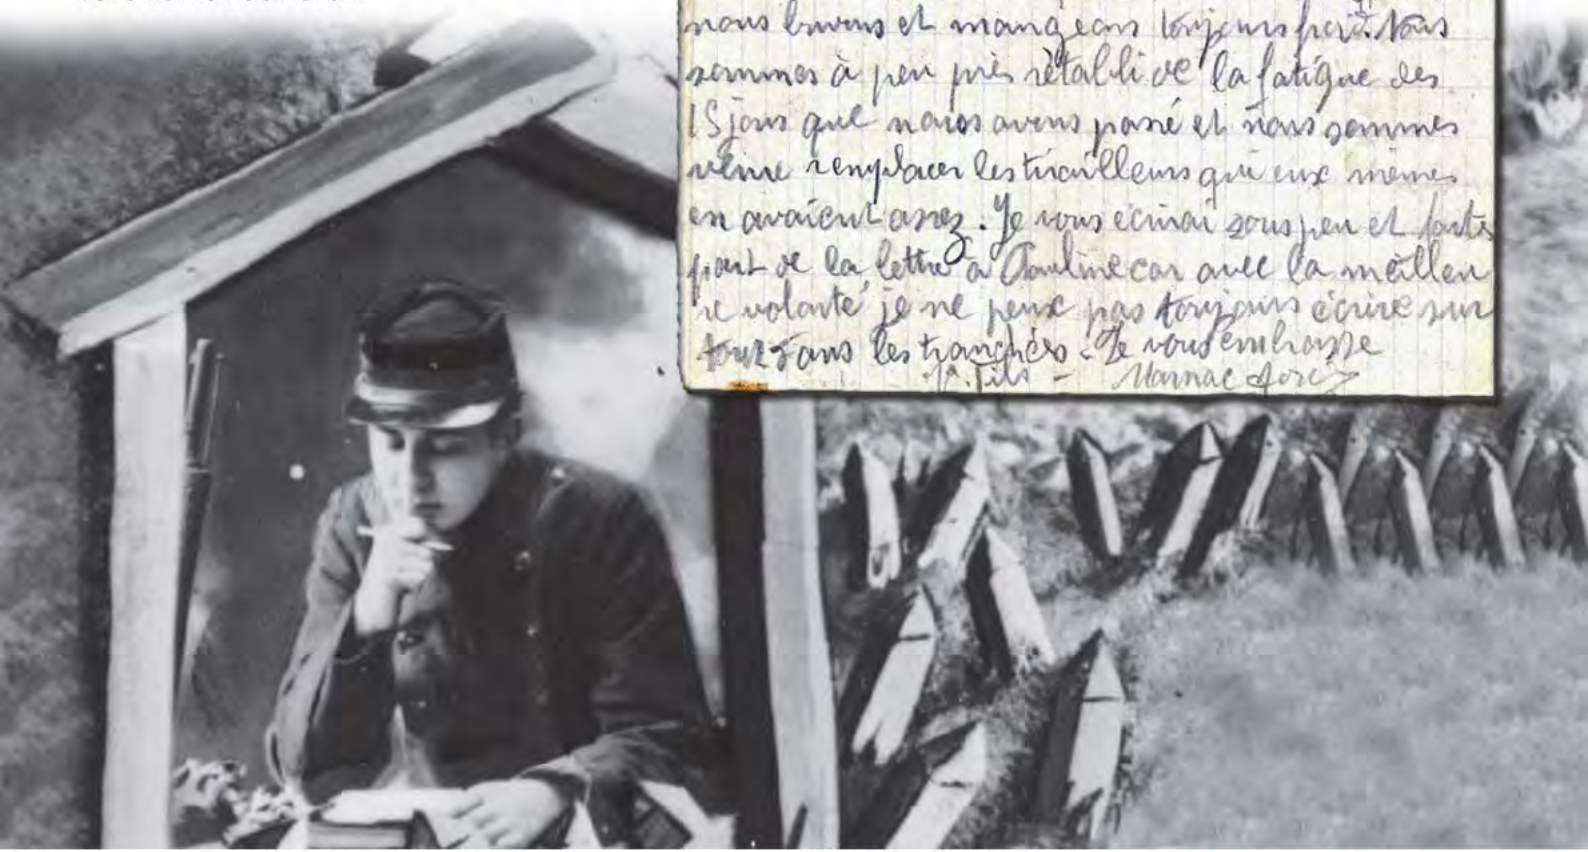 nous buvons et mangeons toujours froid. Nous
sommes à peu près rétabli de la fatigue des
15 jours que nous avons passé et nous sommes
venu remplacer les tirailleurs qui eux mêmes
en avaient assez. Je vous écrirai sous peu et faites
part de la lettre à Pauline car avec la meilleu
re volonté je ne peux pas toujours écrire sur
tout dans les tranchées. Je vous embrasse
Fils - Marnac